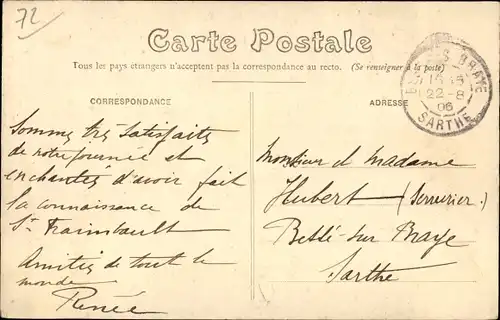 72
Carte Postale
Tous les pays étrangers n'acceptent pas la correspondance au recto. (Se renseigner à la poste)
CORRESPONDANCE
ADRESSE
BRAYE
22-8
06
SARTHE
Sommes très satisfaits
de notre journée et
enchantés d'avoir fait
la connaissance de
St Fraimbault
Amitiés de tout le
monde
Renée
Monsieur et Madame
Hubert (Serrurier)
Bessé sur Braye
Sarthe